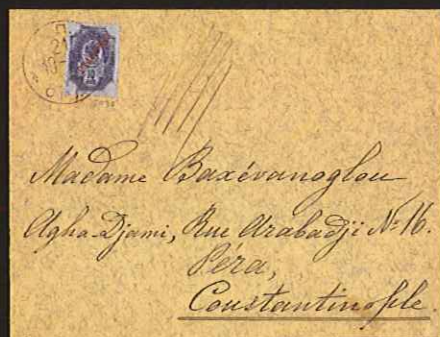 21
Madame Baxévanoglou
Agha-Djami, Rue Arabadji № 16.
Péra,
Constantinople.